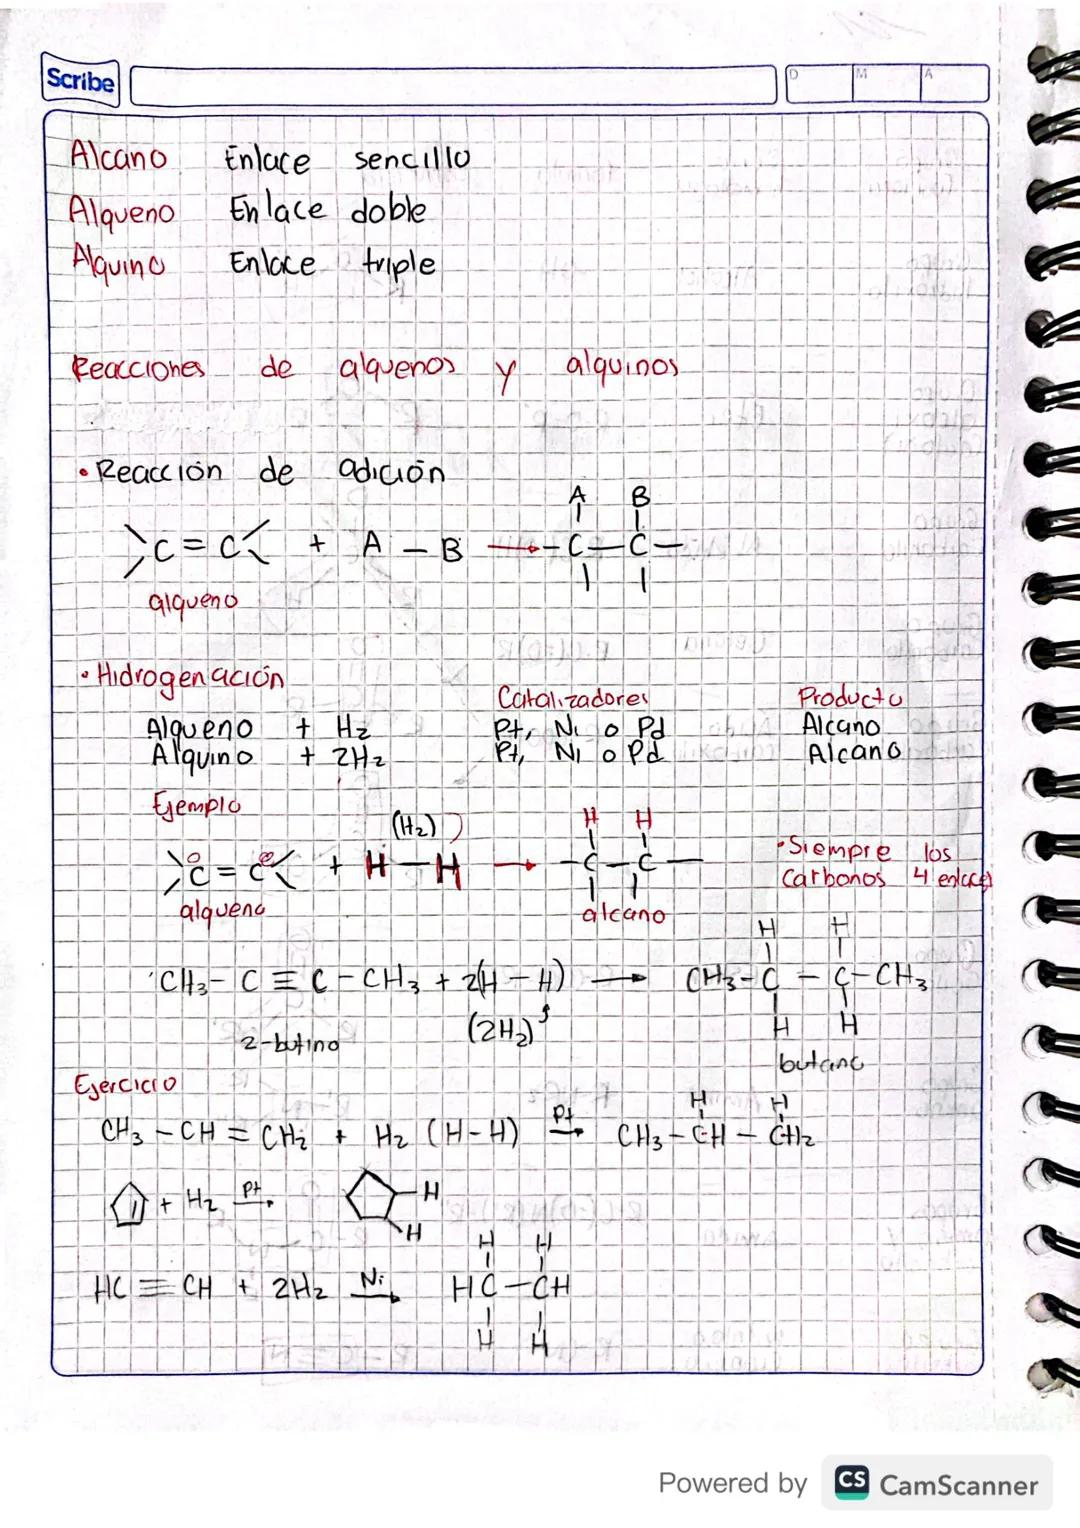 Scribe
D M A
Alcano Enlace sencillo
Alqueno Enlace doble
Alquino Enlace triple
Reacciones de alquenos y alquinos
• Reacción de adición
A B
C = C + A – B → – C – C –
alqueno
• Hidrogenación
Catalizadores Producto
Alqueno + H₂ Pt, Ni o Pd Alcano
Alquino + 2H₂ Pt, Ni o Pd Alcano
Ejemplo
(H₂) H H
C = C + H – H → – C – C –
• Siempre los
Carbonos 4 enlaces
alqueno alcano
H H
CH₃ – C ≡ C – CH₃ + 2(H – H) → CH₃ – C – C – CH₃
(2H₂) H H
2-butino butano
Ejercicio
H H
CH₃ – CH = CH₂ + H₂ (H-H) Pt → CH₃ – CH – CH₂
+ H₂ Pt → H
H
H H
HC ≡ CH + 2H₂ Ni → HC – CH
H H
Powered by CS CamScanner